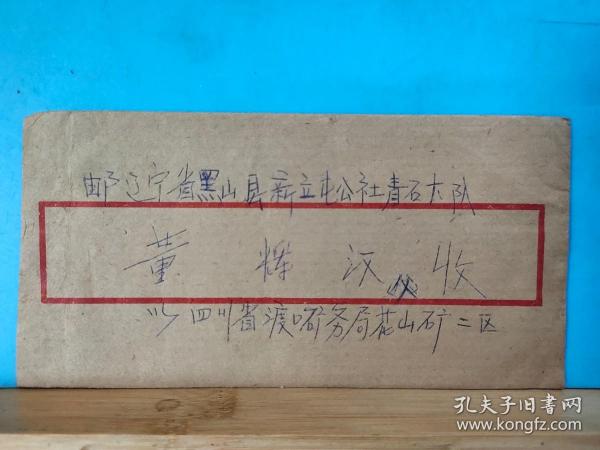 邮辽宁省黑山县新立屯公社青石大队
董辉汉 收
四川省渡口矿务局花山矿二区
孔夫子旧书网
www.kongfz.com